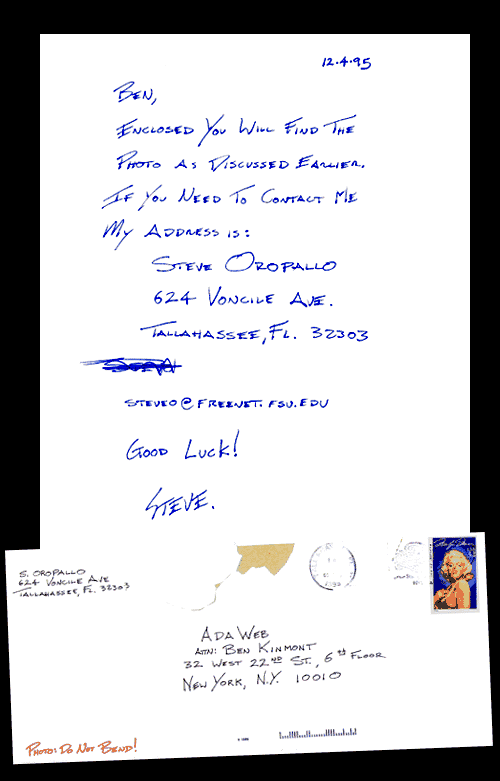 12.4.95
BEN,
ENCLOSED YOU WILL FIND THE
PHOTO AS DISCUSSED EARLIER.
IF YOU NEED TO CONTACT ME
MY ADDRESS IS:
STEVE OROPALLO
624 VONCILE AVE.
TALLAHASSEE, FL. 32303
STEVEO@FREENET.FSU.EDU
GOOD LUCK!
STEVE.
S. OROPALLO
624 VONCILE AVE
TALLAHASSEE, FL. 32303
ADA WEB
ATTN: BEN KINMONT
32 WEST 22ND ST., 6TH FLOOR
NEW YORK, N.Y. 10010
PHOTO: DO NOT BEND!